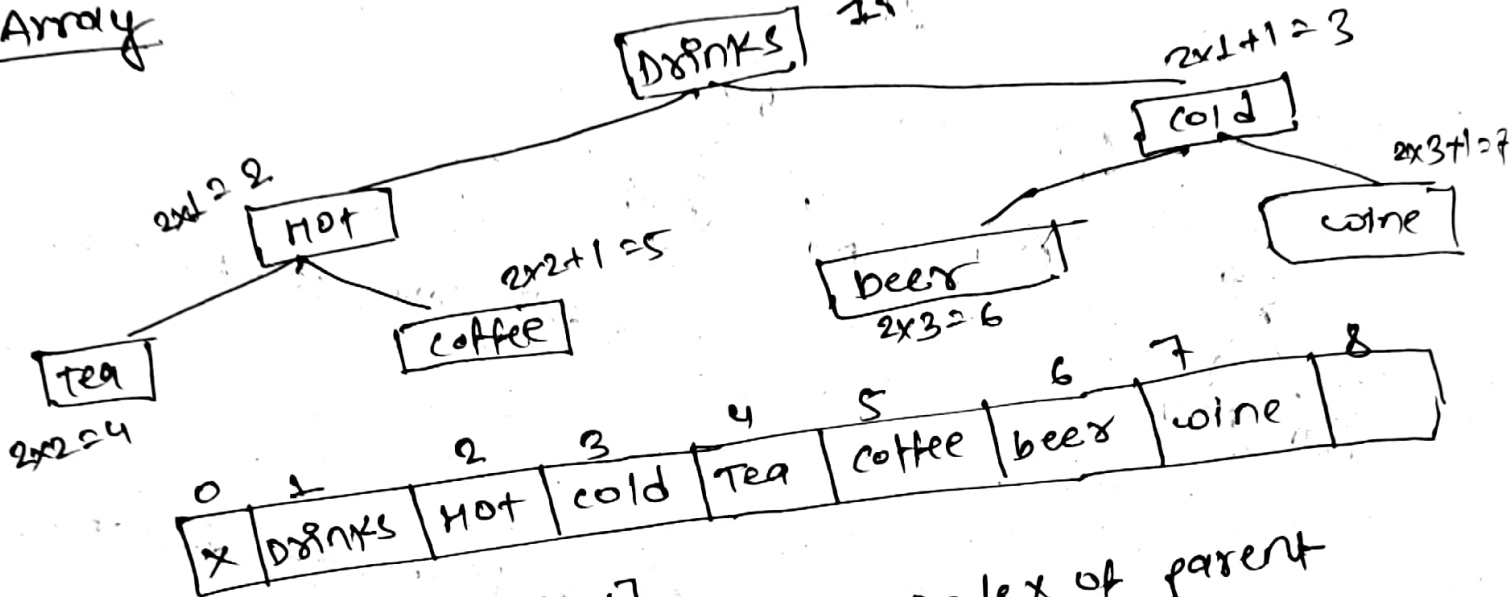 Array
Drinks
2x1+1=3
cold
2x3+1=7
2x1=2
Hot
wine
2x2+1=5
beer
2x3=6
coffee
Tea
2x2=4
0 1 2 3 4 5 6 7 8
X Drinks Hot cold Tea coffee beer wine
of parent